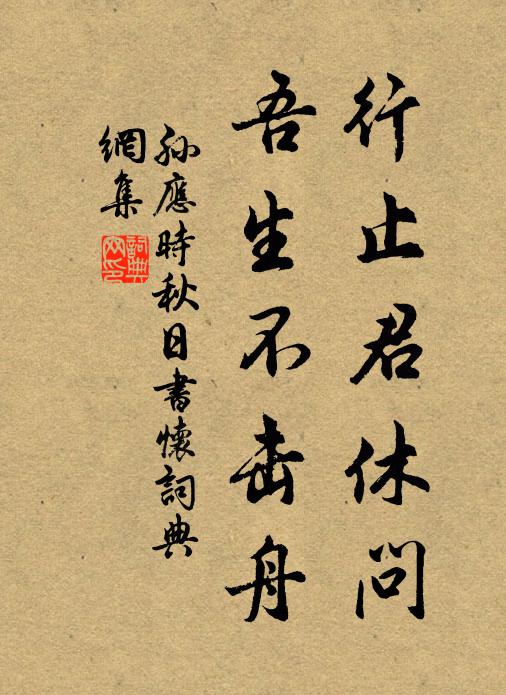 行止君休問
吾生不击舟
孫應時秋日書懷詞典
網集
詞典
网印